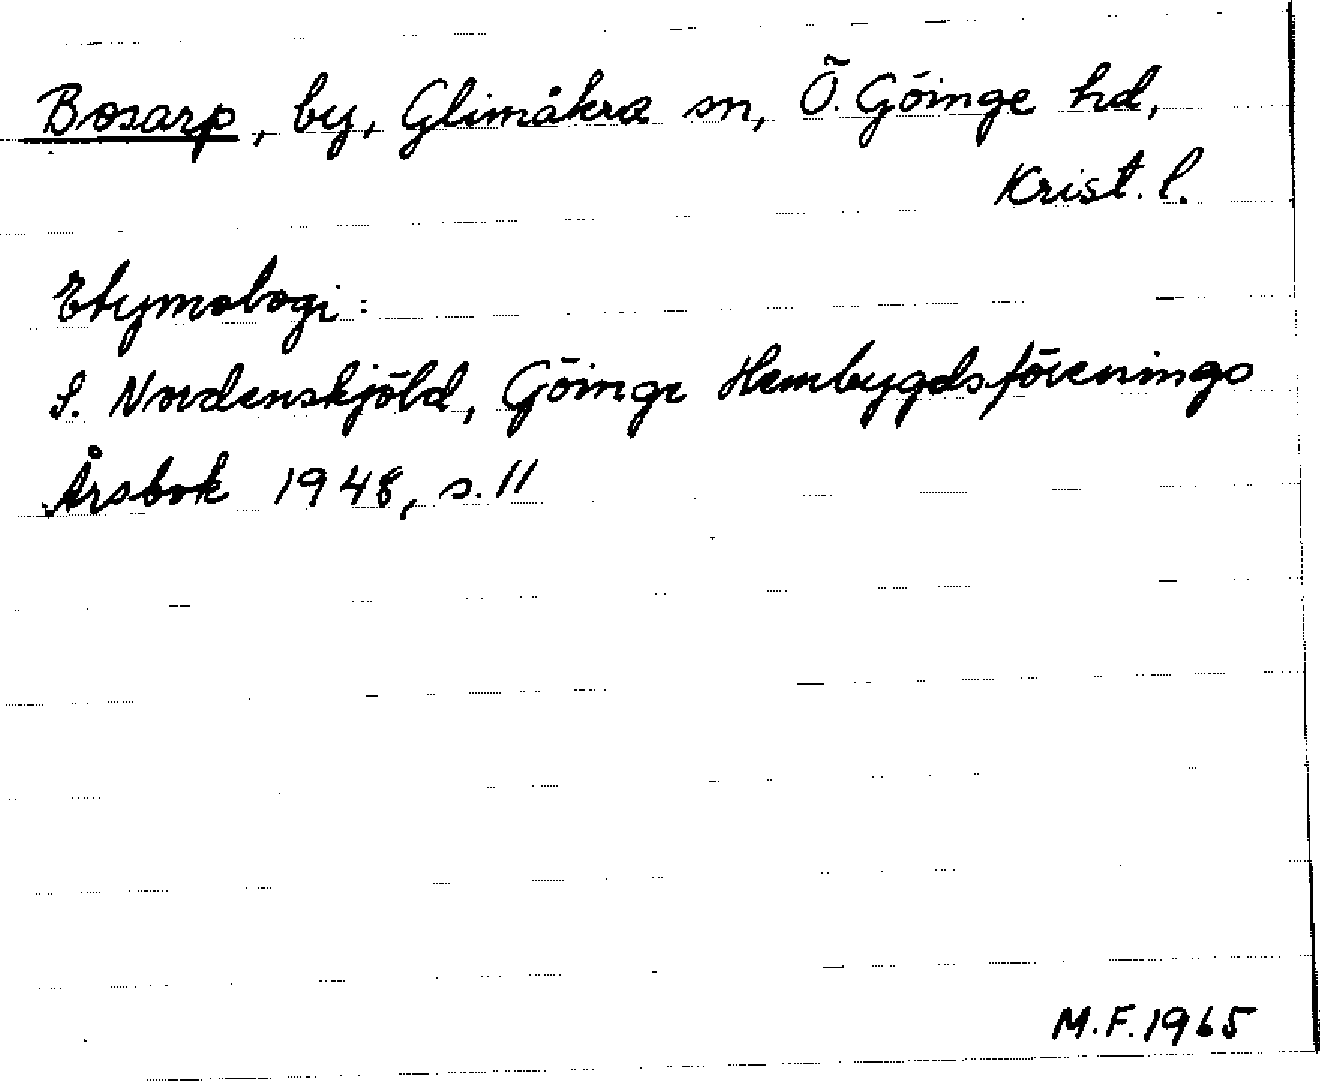 Bosarp, by, Glimåkra sn, Ö. Göinge hd,
Krist. l.
Etymologi:
S. Nordenskjöld, Göinge Hembygdsförenings
Årsbok 1948, s. 11
M.F. 1965